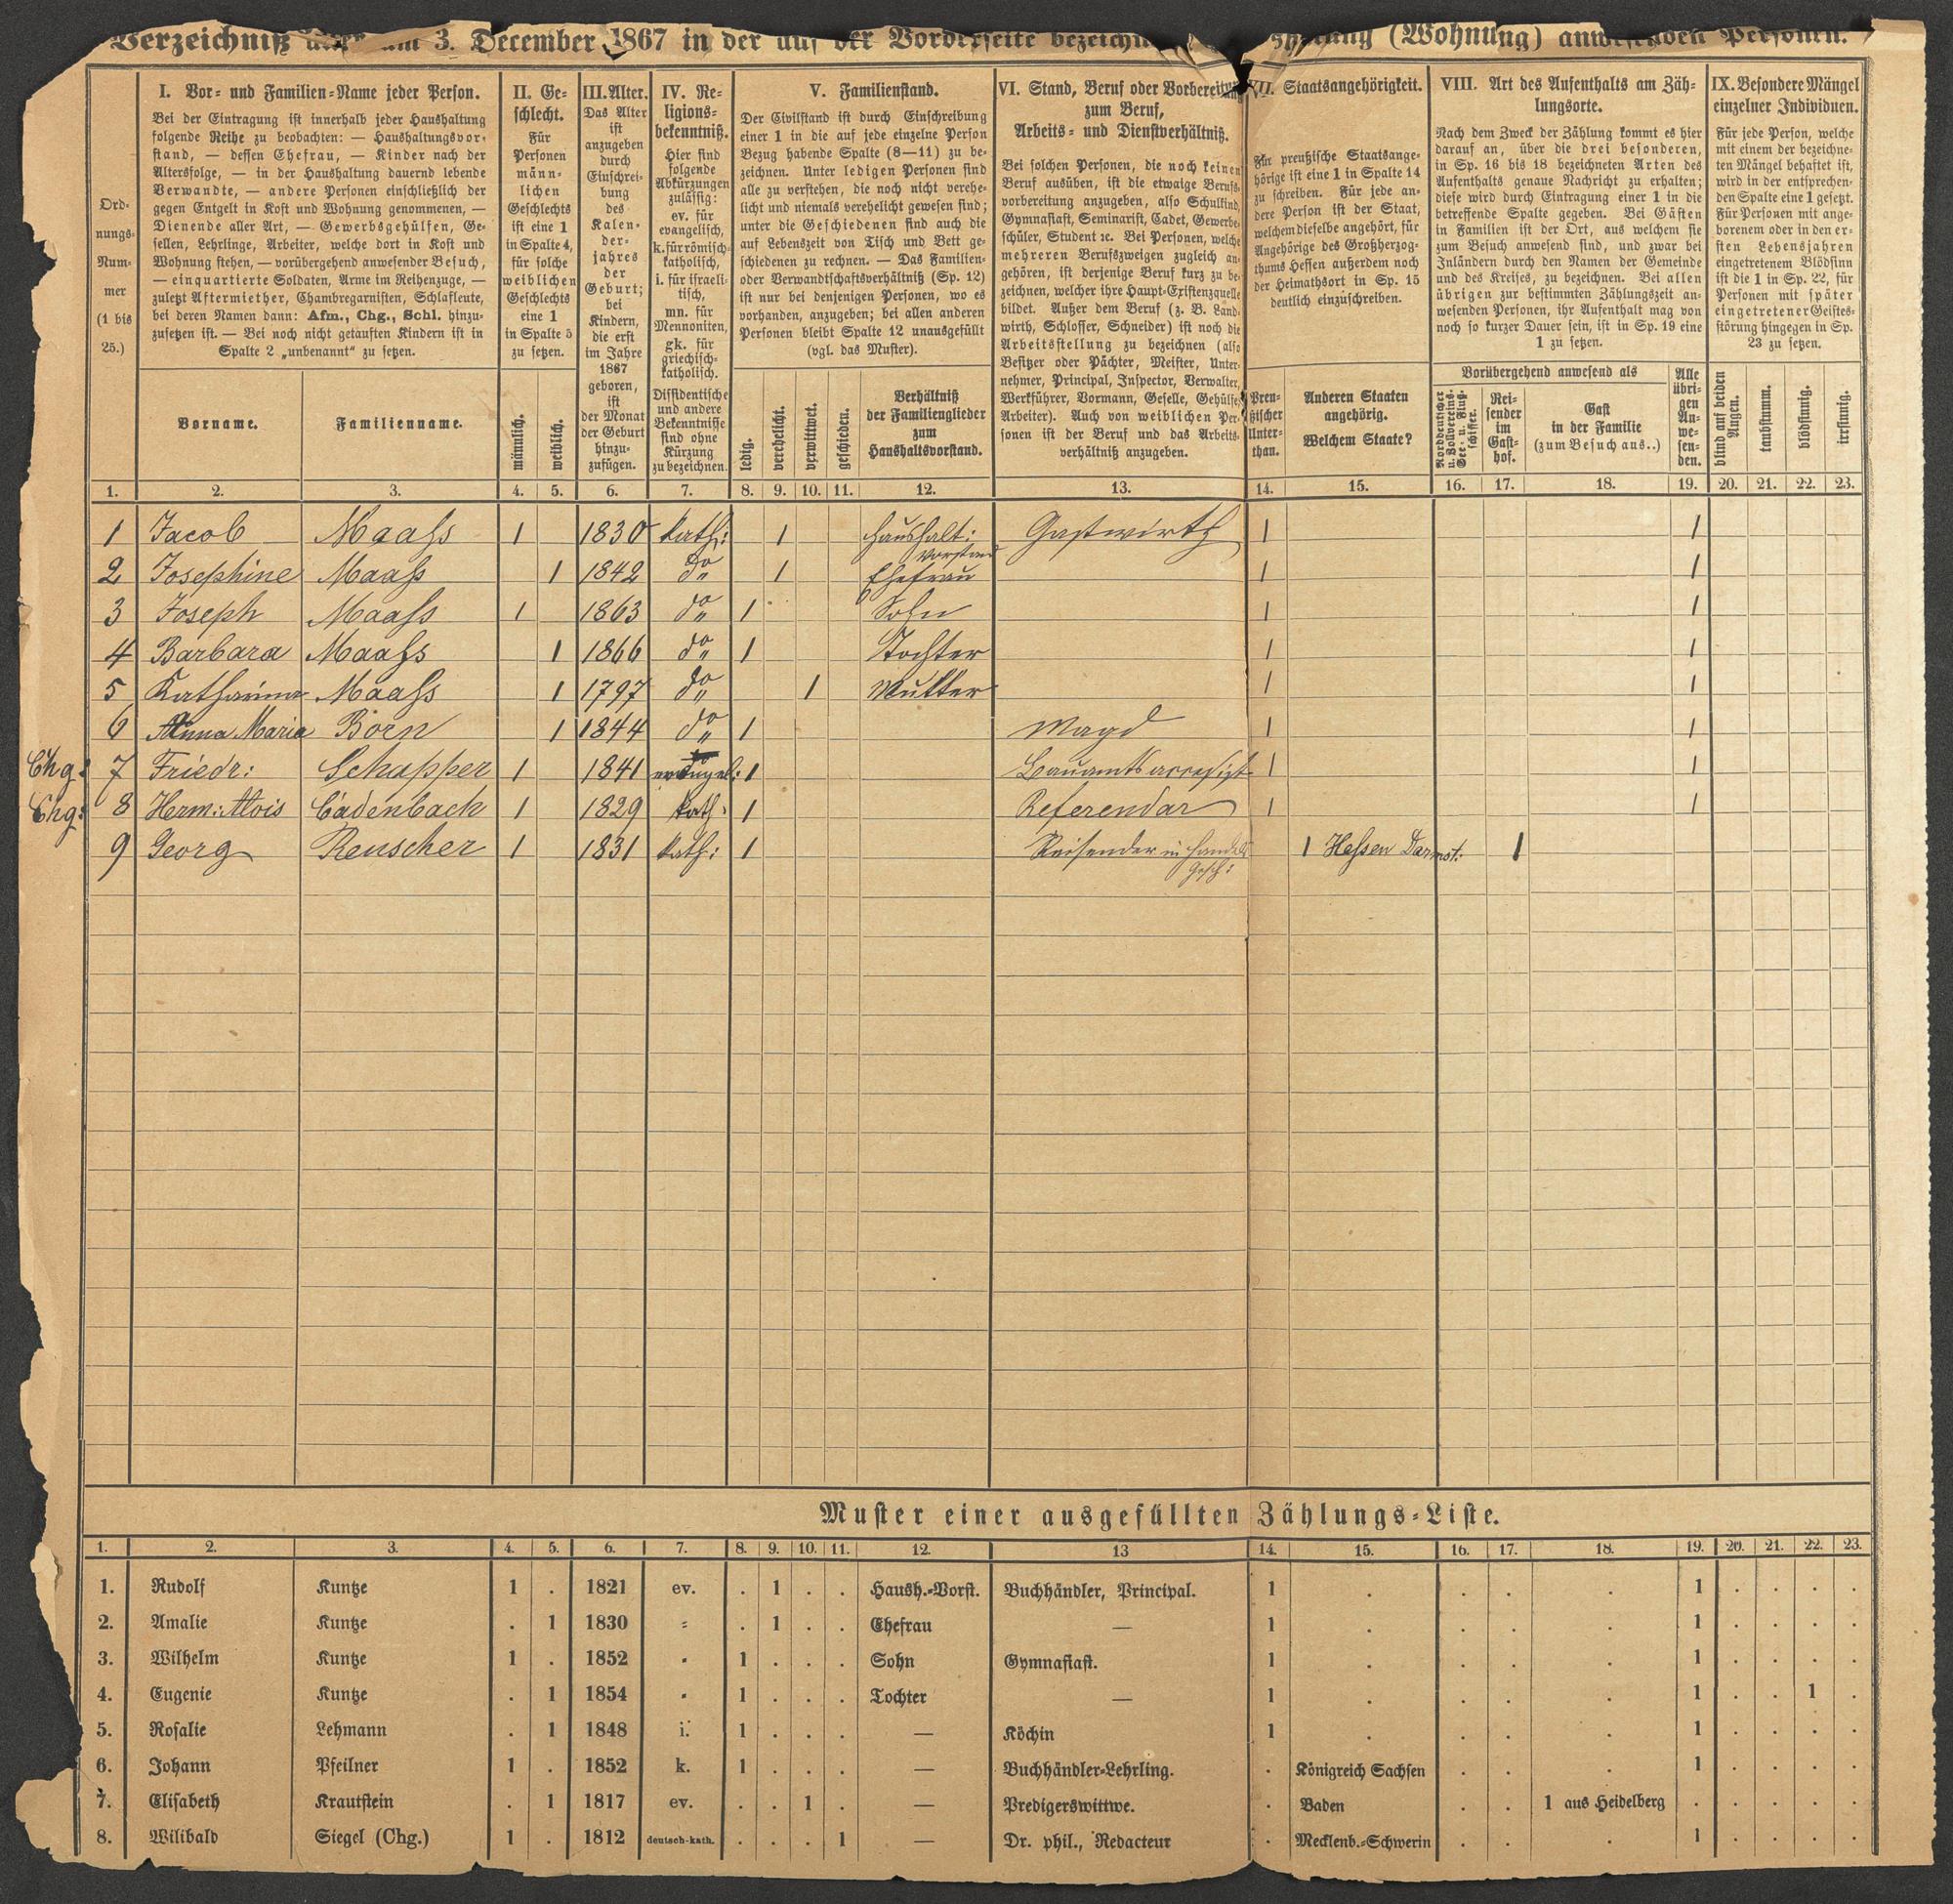 Verzeichniß aller am 3. December 1867 in der auf der Vorderseite (Wohnung) anwesenden Personen.
Ord-
nungs-
Num-
mer
(1 bis
25.)
I. Vor- und Familien-Name jeder Person.
Bei der Eintragung ist innerhalb jeder Haushaltung
folgende Reihe zu beobachten: — Haushaltungsvor-
stand, — dessen Ehefrau, — Kinder nach der
Altersfolge, — in der Haushaltung dauernd lebende
Verwandte, — andere Personen einschließlich der
gegen Entgelt in Kost und Wohnung genommenen, —
Dienende aller Art, — Gewerbsgehülfen, Ge-
sellen, Lehrlinge, Arbeiter, welche dort in Kost und
Wohnung stehen, — vorübergehend anwesender Besuch,
— einquartierte Soldaten, Arme im Reihenzuge, —
zuletzt Aftermiether, Chambregarnisten, Schlafleute,
bei deren Namen dann: Afm., Chg., Schl. hinzu-
zusetzen ist. — Bei noch nicht getauften Kindern ist in
Spalte 2 „unbenannt“ zu setzen.
Vorname.
Familienname.
II. Ge-
schlecht.
Für
Personen
männ-
lichen
Geschlechts
ist eine 1
in Spalte 4,
für solche
weiblichen
Geschlechts
eine 1
in Spalte 5
zu setzen.
männlich.
weiblich.
III. Alter.
Das Alter
ist
anzugeben
durch
Einschrei-
bung
des
Kalen-
der-
jahres
der
Geburt;
bei
Kindern,
die erst
im Jahre
1867
geboren,
ist
der Monat
der Geburt
hinzu-
zufügen.
IV. Re-
ligions-
bekenntniß.
Hier sind
folgende
Abkürzungen
zulässig:
ev. für
evangelisch,
k. für römisch-
katholisch,
i. für israeli-
tisch,
mn. für
Mennoniten,
gk. für
griechisch-
katholisch.
Dissidentische
und andere
Bekenntnisse
sind ohne
Kürzung
zu bezeichnen.
V. Familienstand.
Der Civilstand ist durch Einschreibung
einer 1 in die auf jede einzelne Person
Bezug habende Spalte (8—11) zu be-
zeichnen. Unter ledigen Personen sind
alle zu verstehen, die noch nicht verehe-
licht und niemals verehelicht gewesen sind;
unter die Geschiedenen sind auch die
auf Lebenszeit von Tisch und Bett ge-
schiedenen zu rechnen. — Das Familien-
oder Verwandtschaftsverhältniß (Sp. 12)
ist nur bei denjenigen Personen, wo es
vorhanden, anzugeben; bei allen anderen
Personen bleibt Spalte 12 unausgefüllt
(vgl. das Muster).
ledig.
verehelicht.
verwittwet.
geschieden.
Verhältniß
der Familienglieder
zum
Haushaltsvorstand.
VI. Stand, Beruf oder Vorbereitung
zum Beruf,
Arbeits- und Dienstverhältniß.
Bei solchen Personen, die noch keinen
Beruf ausüben, ist die etwaige Berufs-
vorbereitung anzugeben, also Schulkind,
Gymnasiast, Seminarist, Cadet, Gewerbe-
schüler, Student ꝛc. Bei Personen, welche
mehreren Berufszweigen zugleich an-
gehören, ist derjenige Beruf kurz zu be-
zeichnen, welcher ihre Haupt-Existenzquelle
bildet. Außer dem Beruf (z. B. Land-
wirth, Schlosser, Schneider) ist noch die
Arbeitsstellung zu bezeichnen (also
Besitzer oder Pächter, Meister, Unter-
nehmer, Principal, Inspector, Verwalter,
Werkführer, Vormann, Geselle, Gehülfe,
Arbeiter). Auch von weiblichen Per-
sonen ist der Beruf und das Arbeits-
verhältniß anzugeben.
VII. Staatsangehörigkeit.
Für preußische Staatsange-
hörige ist eine 1 in Spalte 14
zu schreiben. Für jede an-
dere Person ist der Staat,
welchem dieselbe angehört, für
Angehörige des Großherzog-
thums Hessen außerdem noch
der Heimathsort in Sp. 15
deutlich einzuschreiben.
Preu-
ßischer
Unter-
than.
Anderen Staaten
angehörig.
Welchem Staate?
VIII. Art des Aufenthalts am Zäh-
lungsorte.
Nach dem Zweck der Zählung kommt es hier
darauf an, über die drei besonderen,
in Sp. 16 bis 18 bezeichneten Arten des
Aufenthalts genaue Nachricht zu erhalten;
diese wird durch Eintragung einer 1 in die
betreffende Spalte gegeben. Bei Gästen
in Familien ist der Ort, aus welchem sie
zum Besuch anwesend sind, und zwar bei
Inländern durch den Namen der Gemeinde
und des Kreises, zu bezeichnen. Bei allen
übrigen zur bestimmten Zählungszeit an-
wesenden Personen, ihr Aufenthalt mag von
noch so kurzer Dauer sein, ist in Sp. 19 eine
1 zu setzen.
Vorübergehend anwesend als
Norddeutscher
u. Vollvereins-
See- u. Fluß-
schiffer.
Rei-
sender
im
Gast-
hof.
Gast
in der Familie
(zum Besuch aus..)
Alle
übri-
gen
An-
we-
sen-
den.
IX. Besondere Mängel
einzelner Individuen.
Für jede Person, welche
mit einem der bezeichne-
ten Mängel behaftet ist,
wird in der entsprechen-
den Spalte eine 1 gesetzt.
Für Personen mit ange-
borenem oder in den er-
sten Lebensjahren
eingetretenem Blödsinn
ist die 1 in Sp. 22, für
Personen mit später
eingetretener Geistes-
störung hingegen in Sp.
23 zu setzen.
blind auf beiden
Augen.
taubstumm.
blödsinnig.
irrsinnig.
1. 2. 3. 4. 5. 6. 7. 8. 9. 10. 11. 12. 13. 14. 15. 16. 17. 18. 19. 20. 21. 22. 23.
1 Jacob Maaß 1 1830 kath: 1 Haushalt: vorstand Gastwirth 1 1
2 Josephine Maaß 1 1842 do 1 Ehefrau 1 1
3 Joseph Maaß 1 1863 do 1 Sohn 1 1
4 Barbara Maaß 1 1866 do 1 Tochter 1 1
5 Katharina Maaß 1 1797 do 1 Mutter 1 1
6 Anna Maria Born 1 1844 do 1 Magd 1 1
Chg: 7 Friedr: Schapper 1 1841 1 1 1
Chg: 8 Herm: Alois Cadenbach 1 1829 kath: 1 Referendar 1 1
9 Georg Reuscher 1 1831 kath: 1 Reisender in Handels Gesch: 1 Hessen Darmst: 1
Muster einer ausgefüllten Zählungs-Liste.
1. 2. 3. 4. 5. 6. 7. 8. 9. 10. 11. 12. 13 14. 15. 16. 17. 18. 19. 20. 21. 22. 23.
1. Rudolf Kuntze 1 . 1821 ev. . 1 . . Haush.-Vorst. Buchhändler, Principal. 1 . . . . 1 . . . .
2. Amalie Kuntze . 1 1830 = . 1 . . Ehefrau — 1 . . . . 1 . . . .
3. Wilhelm Kuntze 1 . 1852 " 1 . . . Sohn Gymnasiast. 1 . . . . 1 . . . .
4. Eugenie Kuntze . 1 1854 " 1 . . . Tochter — 1 . . . . 1 . . 1 .
5. Rosalie Lehmann . 1 1848 i. 1 . . . — Köchin 1 . . . . 1 . . . .
6. Johann Pfeilner 1 . 1852 k. 1 . . . — Buchhändler-Lehrling. . Königreich Sachsen . . . 1 . . . .
7. Elisabeth Krautstein . 1 1817 ev. . . 1 . — Predigerswittwe. . Baden . . 1 aus Heidelberg . . . . .
8. Wilibald Siegel (Chg.) 1 . 1812 deutsch-kath. . . . 1 — Dr. phil., Redacteur . Mecklenb.-Schwerin . . . 1 . . . .